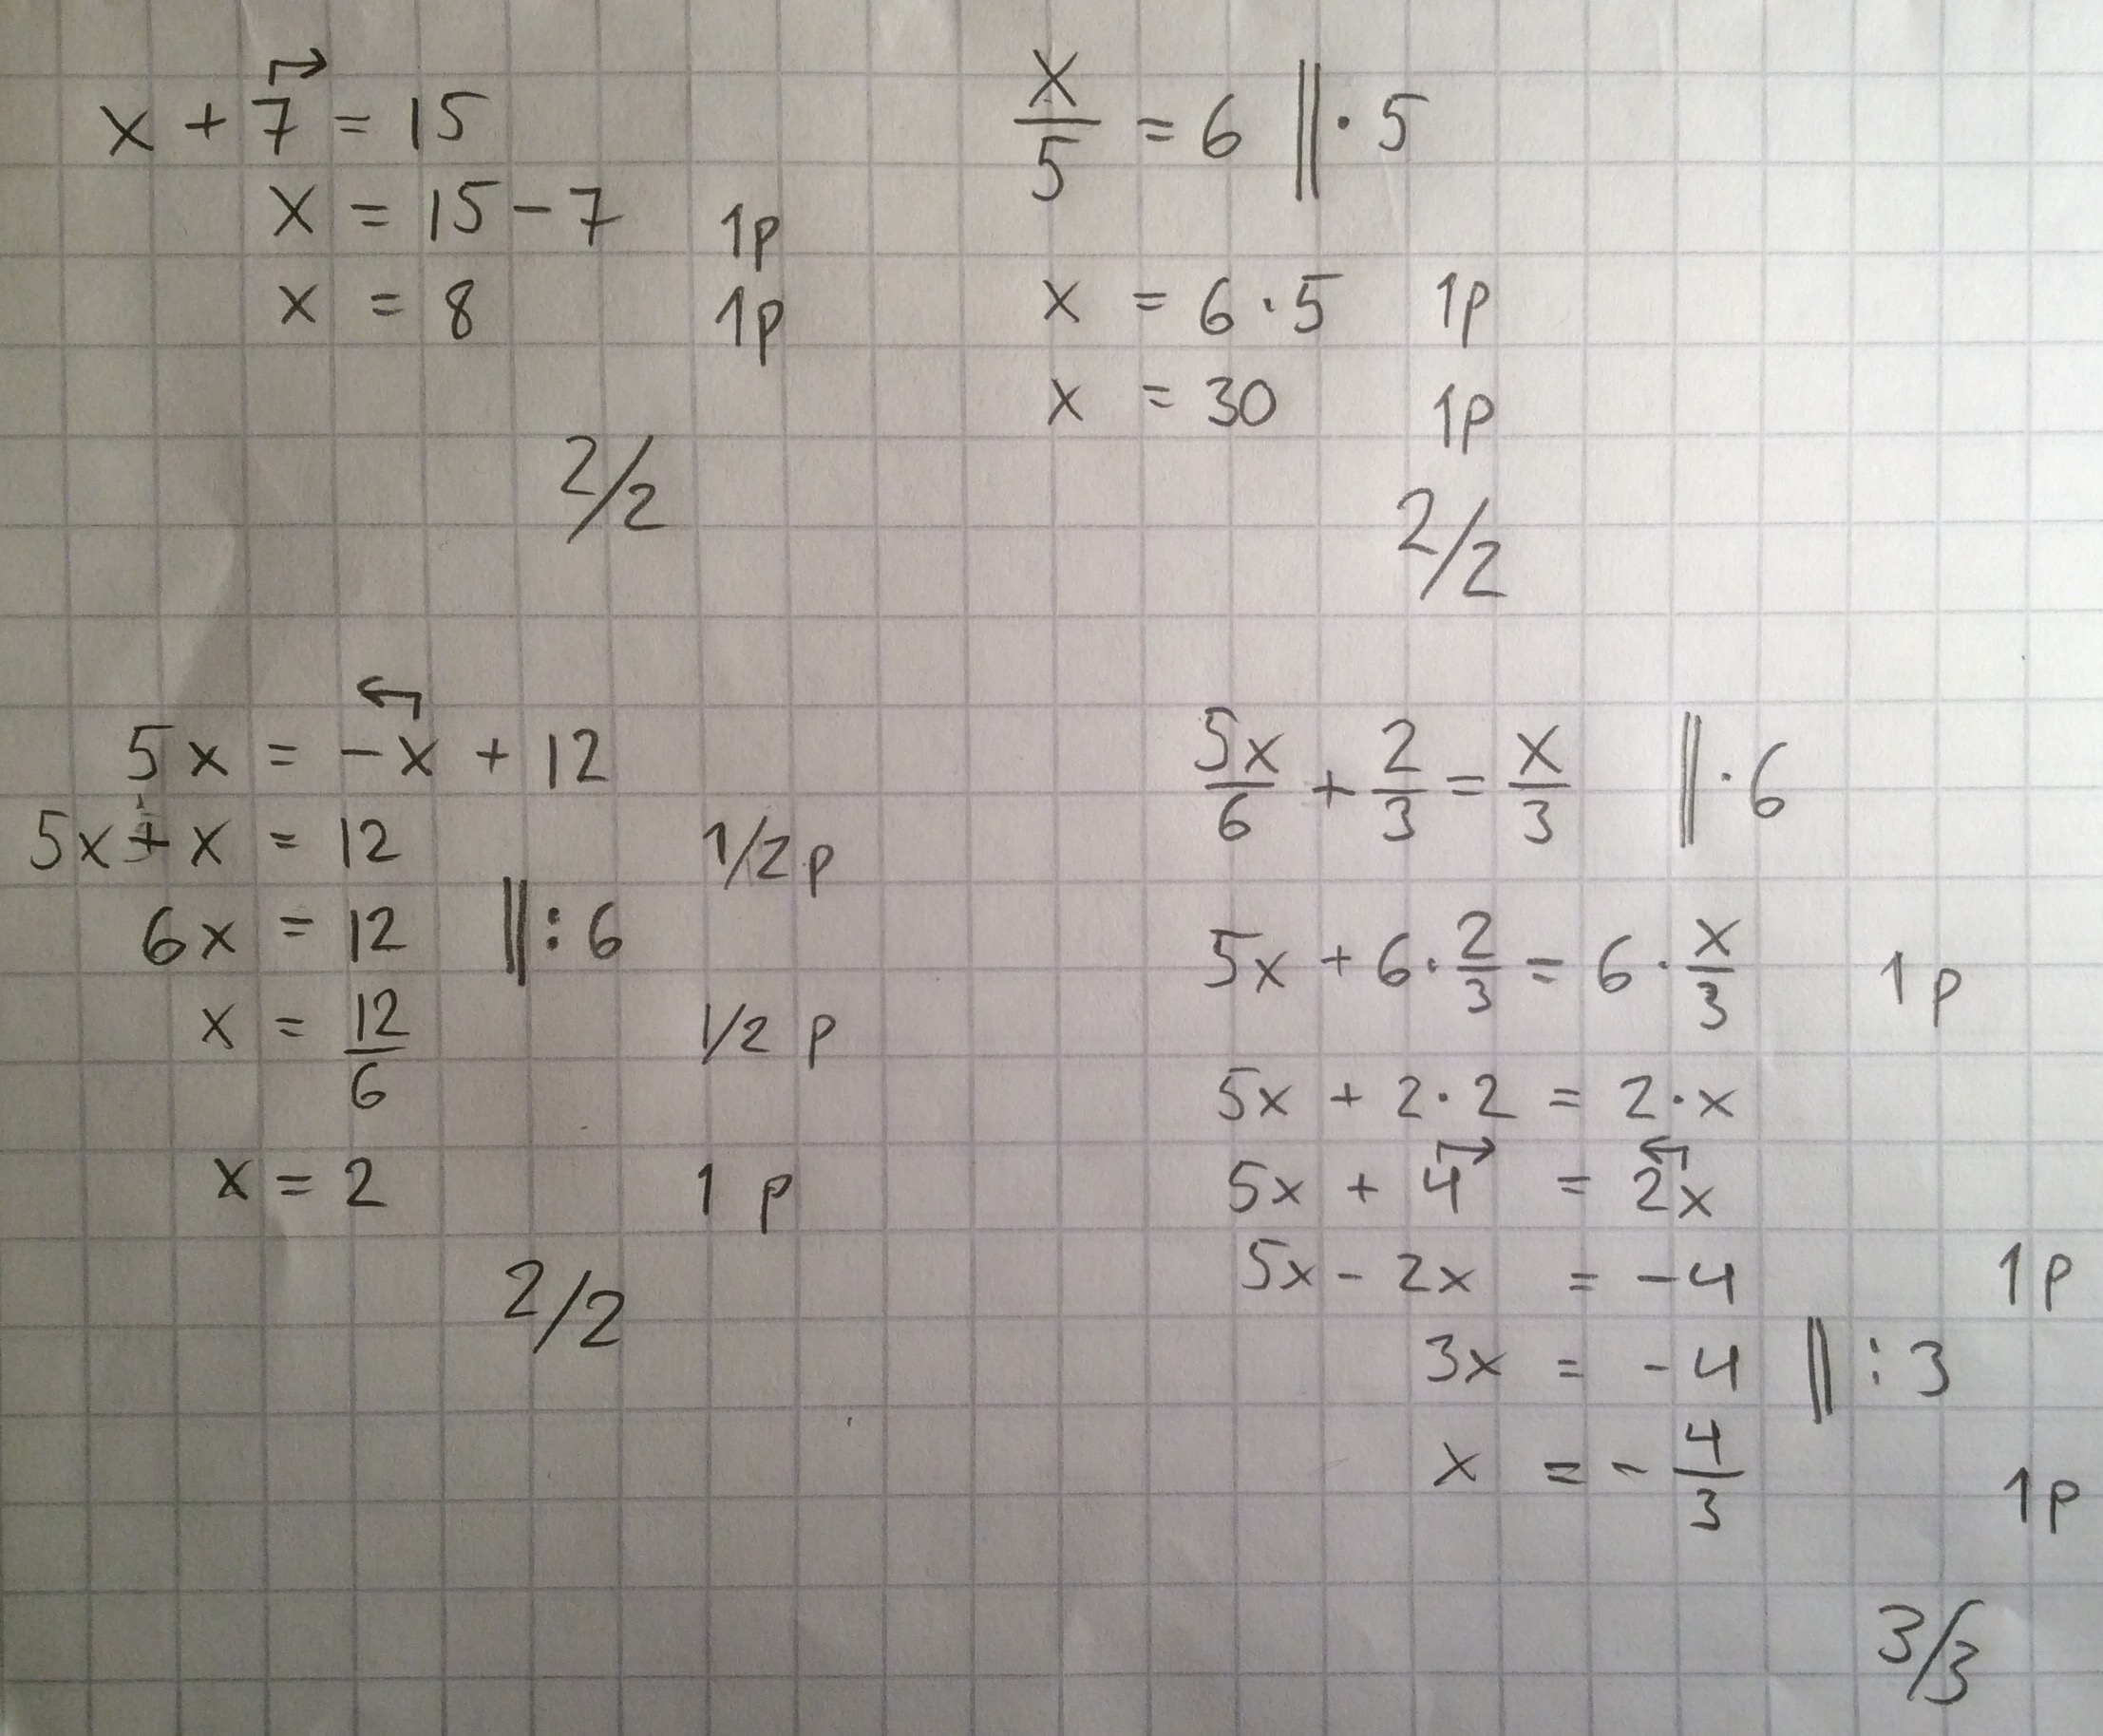 x + 7 = 15
x = 15 - 7 1p
x = 8 1p
2/2
x/5 = 6 ‖ · 5
x = 6 · 5 1p
x = 30 1p
2/2
5x = -x + 12
5x + x = 12 1/2 p
6x = 12 ‖ : 6
x = 12/6 1/2 p
x = 2 1 p
2/2
5x/6 + 2/3 = x/3 ‖ · 6
5x + 6 · 2/3 = 6 · x/3 1 p
5x + 2 · 2 = 2 · x
5x + 4 = 2x
5x - 2x = -4 1p
3x = -4 ‖ : 3
x = - 4/3 1p
3/3